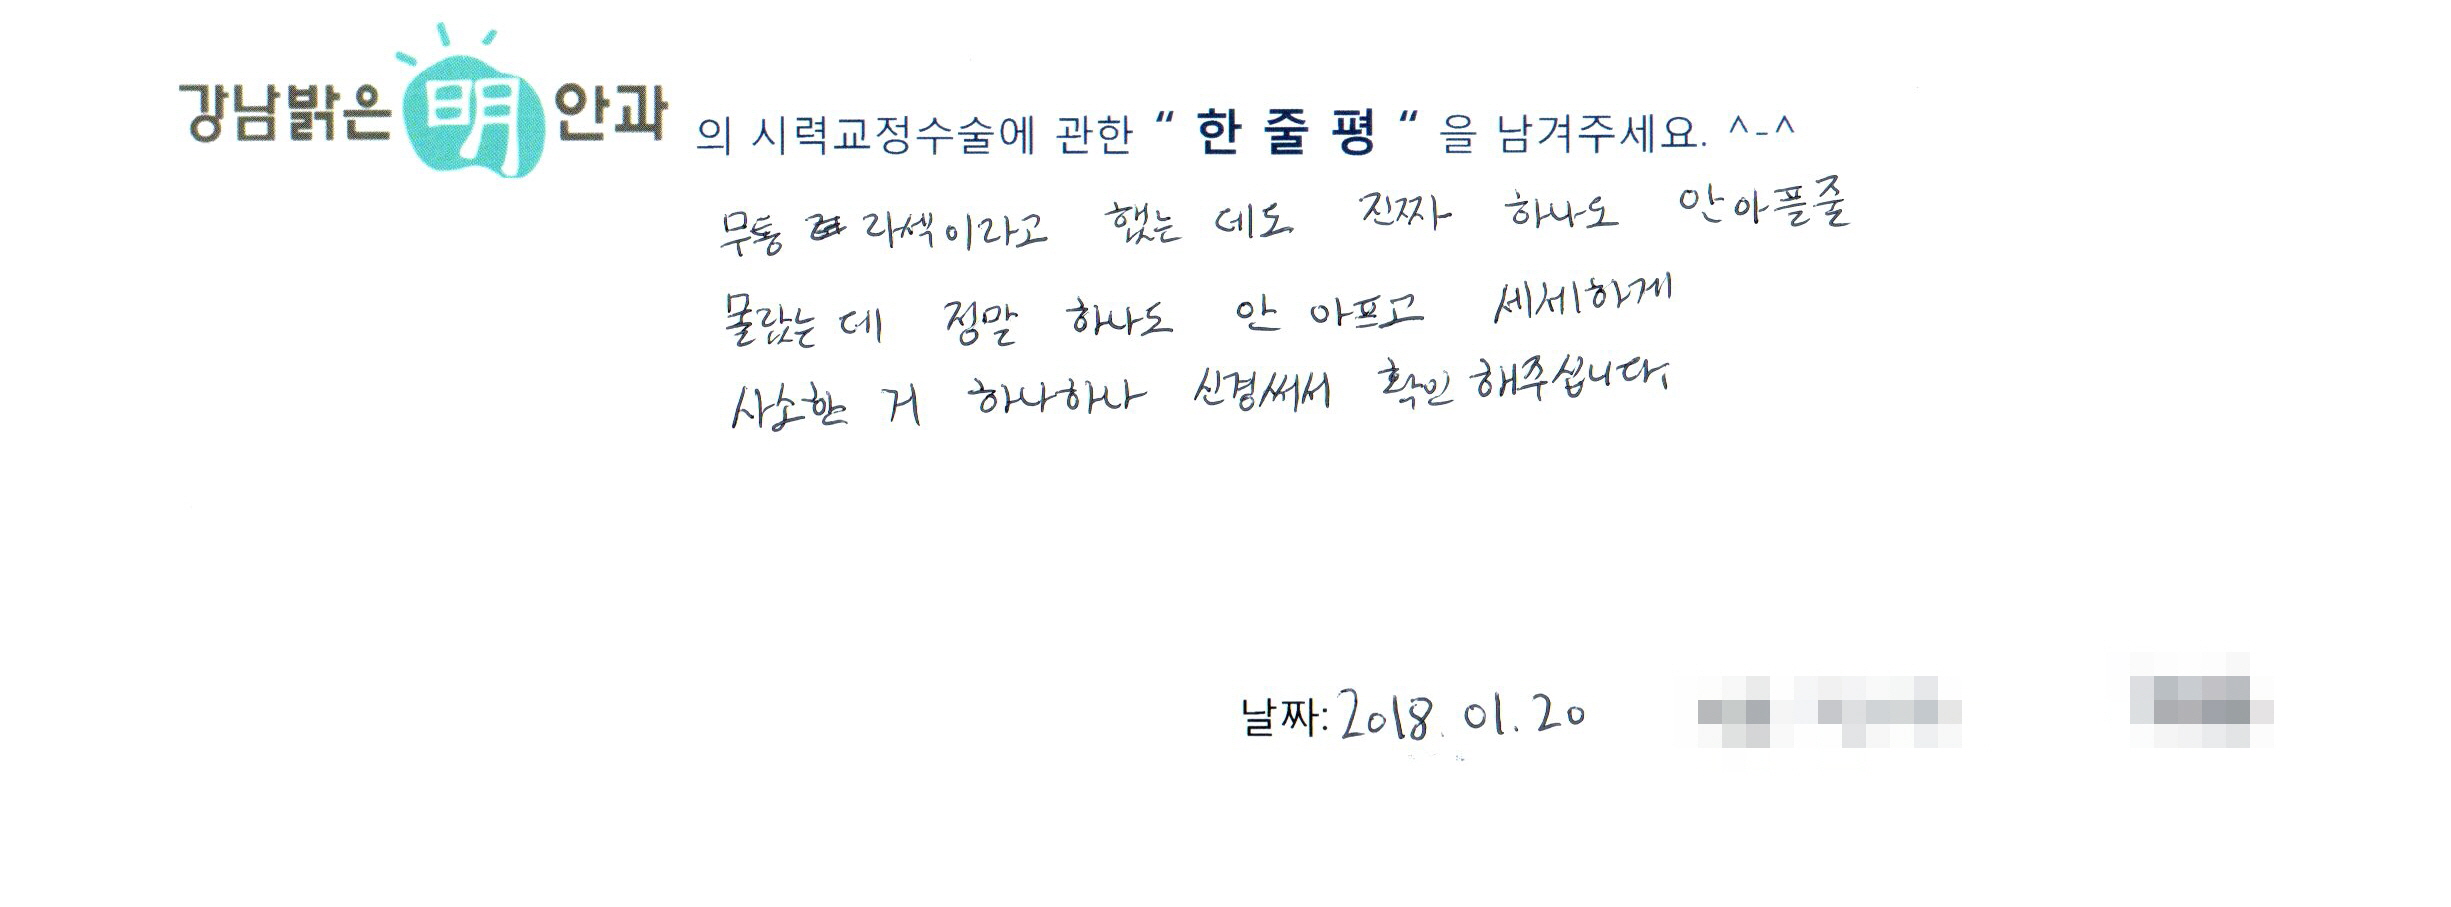 강남밝은明안과 의 시력교정수술에 관한 “ 한 줄 평 “ 을 남겨주세요. ^-^
무통 라섹이라고 했는 데도 진짜 하나도 안아플줄
몰랐는 데 정말 하나도 안 아프고 세세하게
사소한 거 하나하나 신경써서 확인 해주십니다.
날짜: 2018. 01. 20